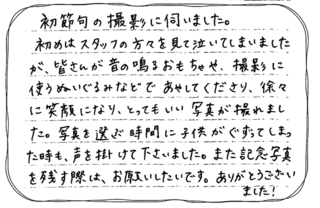 初節句の撮影に伺いました。
初めはスタッフの方々を見て泣いてしまいました
が、皆さんが音の鳴るおもちゃや、撮影に
使うぬいぐるみなどであやしてくださり、徐々
に笑顔になり、とってもいい写真が撮れまし
た。写真を選ぶ時間に子供がぐずってしまっ
た時も、声を掛けて下さいました。また記念写真
を残す際は、お願いしたいです。ありがとうござい
ました!